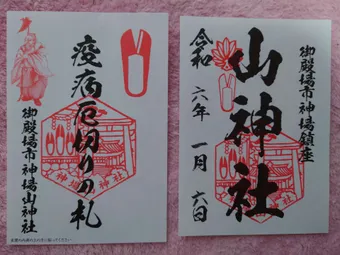 疫病厄切りの札
御殿場市神場山神社
御殿場市神場鎮座
山神社
令和六年一月六日